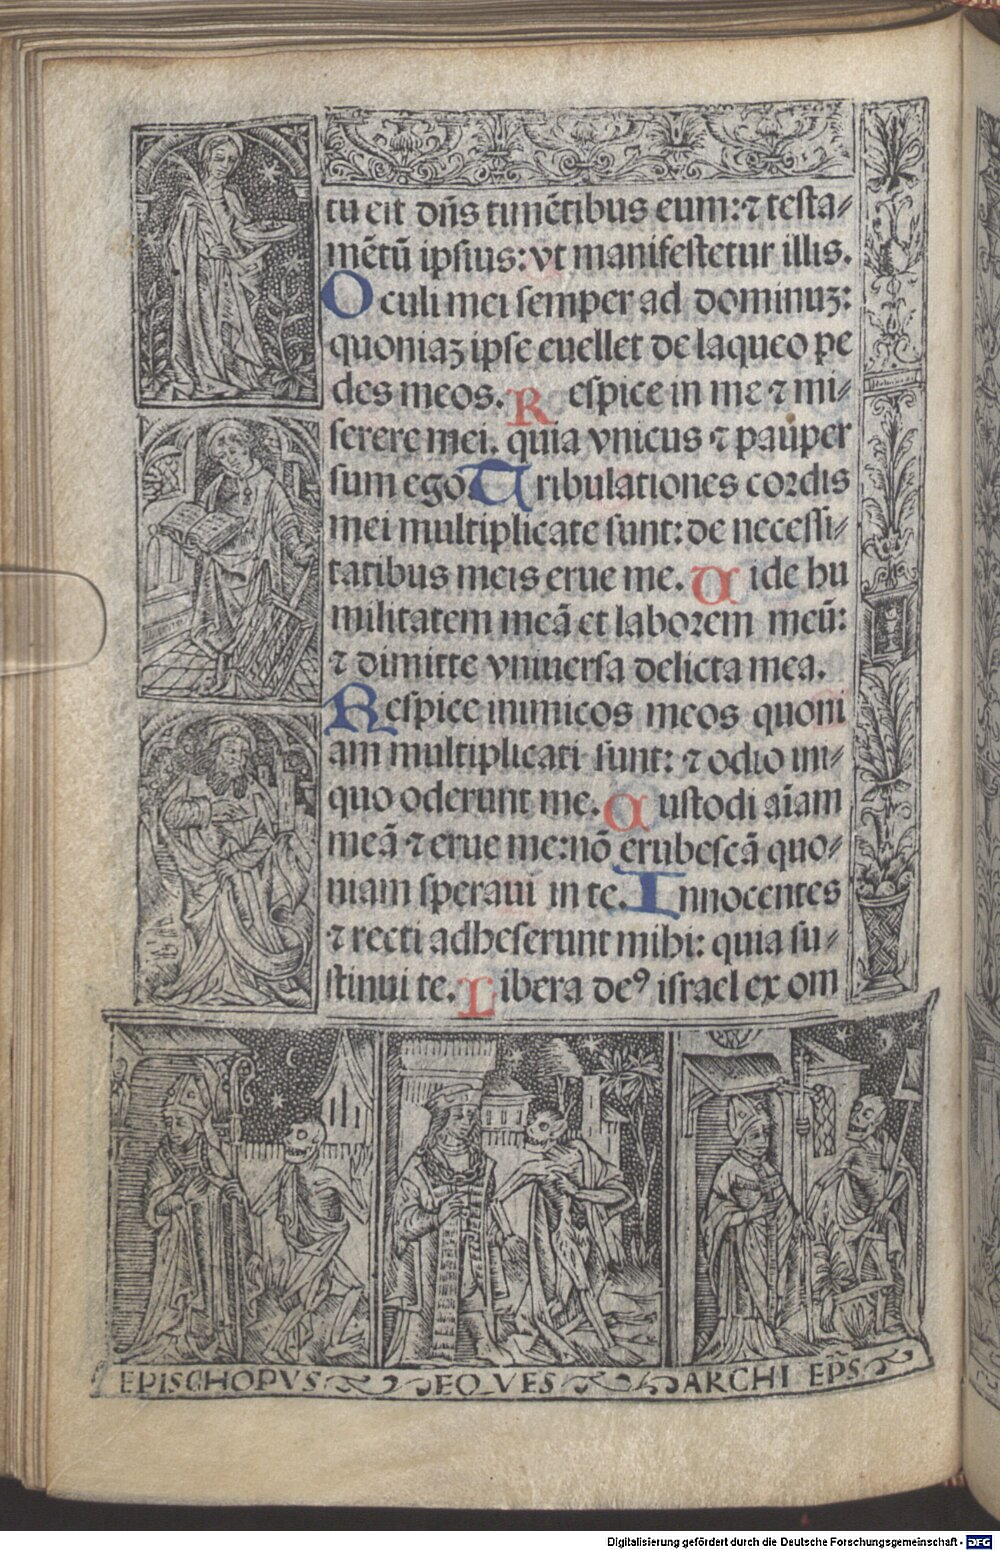 tu eſt dn̄s timētibus eum: ⁊ teſta⸗
mētū ipſius: vt manifeſtetur illis.
Oculi mei ſemper ad dominuꝫ:
quoniaꝫ ipſe euellet de laqueo pe
des meos. Reſpice in me ⁊ mi⸗
ſerere mei. quia vnicus ⁊ pauper
ſum ego. Tribulationes cordis
mei multiplicate ſunt: de neceſſi⸗
tatibus meis erue me. Vide hu
militatem meā et laborem meū:
⁊ dimitte vniuerſa delicta mea.
Reſpice inimicos meos quoni
am multiplicati ſunt: ⁊ odio ini⸗
quo oderunt me. Cuſtodi aīam
meā ⁊ erue me: nō erubeſcā quo⸗
niam ſperaui in te. Innocentes
⁊ recti adheſerunt mihi: quia ſu⸗
ſtinui te. Libera deꝰ iſrael ex om
EPISCHOPVS EQVES ARCHI EPS̄
Digitalisierung gefördert durch die Deutsche Forschungsgemeinschaft - DFG